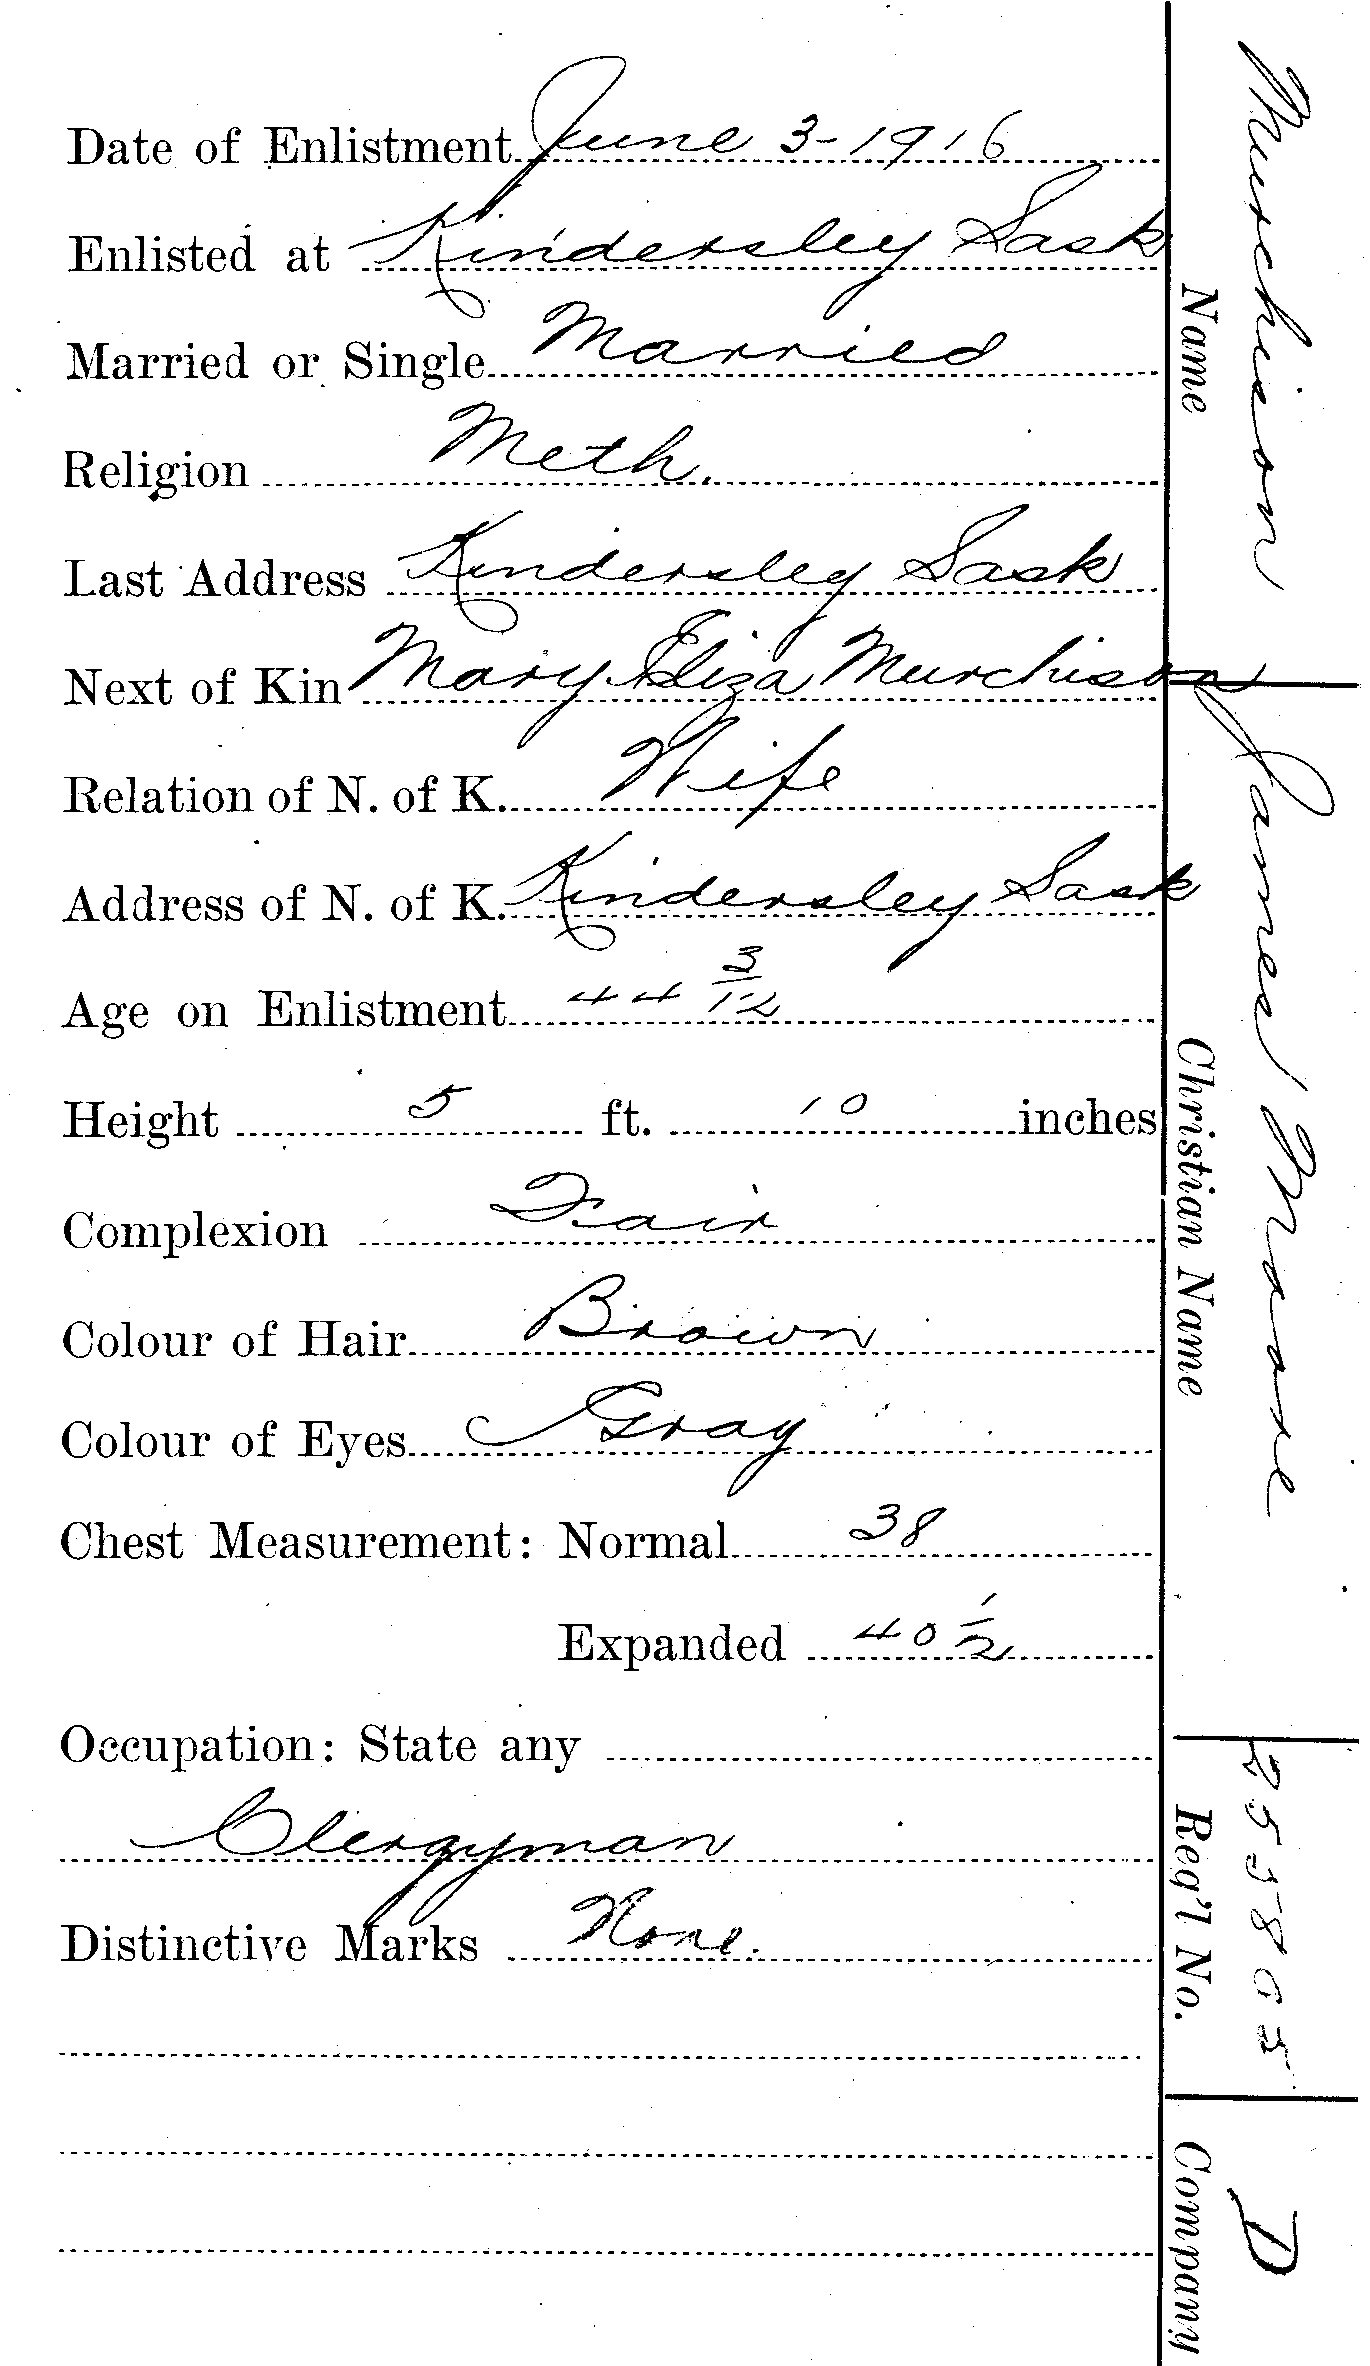 Date of Enlistment June 3-1916
Enlisted at Kindersley Sask
Married or Single Married
Religion Meth.
Last Address Kindersley Sask
Next of Kin Mary Eliza Murchison
Relation of N. of K. Wife
Address of N. of K. Kindersley Sask
Age on Enlistment 44 3/12
Height 5 ft. 10 inches
Complexion Fair
Colour of Hair Brown
Colour of Eyes Gray
Chest Measurement: Normal 38
Expanded 40 1/2
Occupation: State any
Clergyman
Distinctive Marks None.
Murchison James 255805 D
Name Christian Name Reg'l No. Company